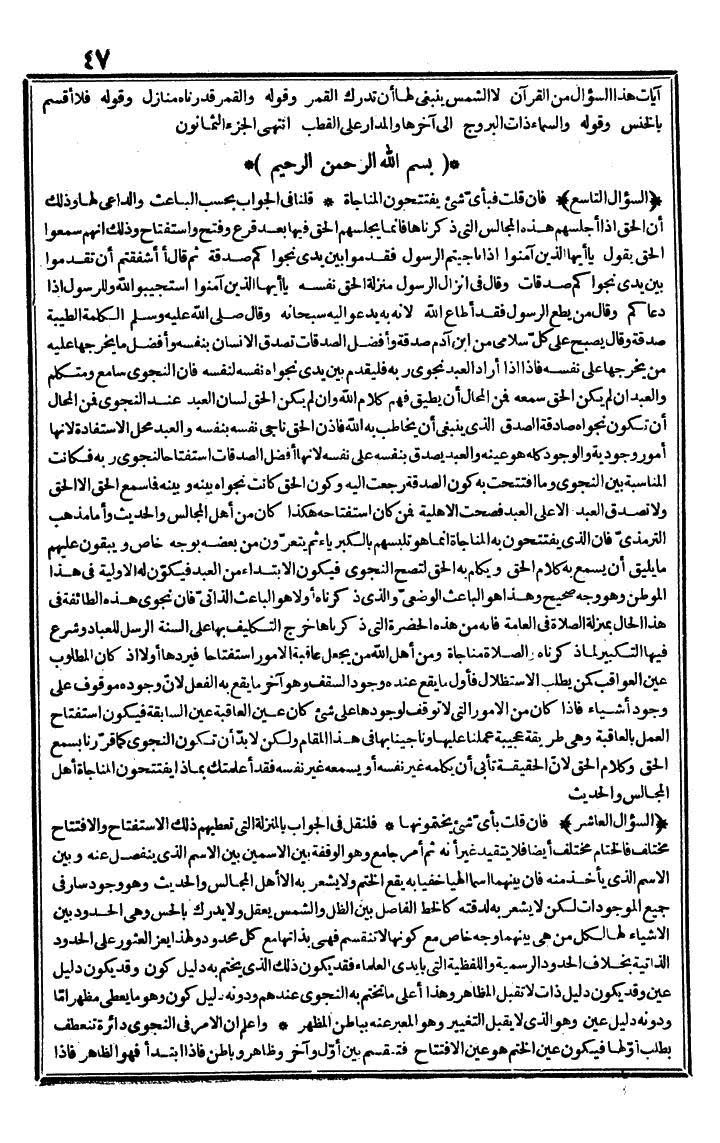 ٤٧
آيات هذا السؤال من القرآن لا الشمس ينبغي لها أن تدرك القمر وقوله والقمر قدرناه منازل وقوله فلا أقسم
بالخنس وقوله والسماء ذات البروج الى آخرها والمدار على القطب انتهى الجزء الثمانون
*( بسم الله الرحمن الرحيم )*
﴿السؤال التاسع﴾ فان قلت فبأى شئ يفتتحون المناجاة * قلنا فى الجواب بحسب الباعث والداعى لها وذلك
أن الحق اذا أجلسهم هذه المجالس التى ذكرناها فانما يجلسهم الحق فيها بعد قرع وفتح واستفتاح وذلك انهم سمعوا
الحق يقول يا أيها الذين آمنوا اذا ناجيتم الرسول فقدموا بين يدى نجواكم صدقة ثم قال أأشفقتم أن تقدموا
بين يدى نجواكم صدقات وقال فى انزال الرسول منزلة الحق نفسه يا أيها الذين آمنوا استجيبوا لله وللرسول اذا
دعاكم وقال من يطع الرسول فقد أطاع الله لانه به يدعو اليه سبحانه وقال صلى الله عليه وسلم الكلمة الطيبة
صدقة وقال يصبح على كل سلامى من ابن آدم صدقة وأفضل الصدقات تصدق الانسان بنفسه وأفضل ما يخرجها عليه
من يخرجها على نفسه فاذا اذا أراد العبد نجوى ربه فليقدم بين يدى نجواه نفسه لنفسه فان النجوى سامع ومتكلم
والعبد ان لم يكن الحق سمعه فمن المحال أن يطيق فهم كلام الله وان لم يكن الحق لسان العبد عند النجوى فمن المحال
أن تكون نجواه صادقة الصدق الذى ينبغى أن يخاطب به الله فاذن الحق ناجى نفسه بنفسه والعبد محل الاستفادة لانها
أمور وجودية والوجود كله هو عينه والعبد يصدق بنفسه على نفسه لانها أفضل الصدقات استفتاحا لنجوى ربه فكانت
المناسبة بين النجوى وما افتتحت به كون الصدقة رجعت اليه وكون الحق كانت نجواه بينه وبينه فاسمع الحق الا الحق
ولا تصدق العبد الا على العبد فصحت الاهلية فمن كان استفتاحه هكذا كان من أهل المجالس والحديث وأما مذهب
الترمذى فان الذى يفتتحون به المناجاة انما هو تلبسهم بالكبرياء ثم يتعرون من بعضه بوجه خاص ويبقون عليهم
ما يليق أن يسمع به كلام الحق ويكلم به الحق لتصح النجوى فيكون الابتداء من العبد فيكون له الاولية فى هذا
الموطن وهو وجه صحيح وهذا هو الباعث الوضعى والذى ذكرناه أولا هو الباعث الذاتى فان نجوى هذه الطائفة فى
هذا الحال بمنزلة الصلاة فى العامة فانه من هذه الحضرة التى ذكرناها خرج التكليف بها على السنة الرسل للعباد وشرع
فيها التكبير لما ذكرناه الصلاة مناجاة ومن أهل الله من يجعل عاقبة الامور استفتاحا فيردها أولا اذ كان المطلوب
عين العواقب كمن يطلب الاستظلال فأول ما يقع عنده وجود السقف وهو آخر ما يقع به الفعل لان وجوده موقوف على
وجود أشياء فاذا كان من الامور التى لا توقف لوجودها على شئ كان عين العاقبة عين السابقة فيكون استفتاح
العمل بالعاقبة وهى طريقة عجيبة عملنا عليها وناجينا بها فى هذا المقام ولكن لا بد أن تكون النجوى كما قررنا بسمع
الحق وكلام الحق لان الحقيقة تأبى أن يكلمه غير نفسه أو يسمعه غير نفسه فقد أعلمتك بماذا يفتتحون المناجاة أهل
المجالس والحديث
﴿السؤال العاشر﴾ فان قلت بأى شئ يختمونها * فلنقل فى الجواب بالمنزلة التى تعطيهم ذلك الاستفتاح والافتتاح
مختلف فالختام مختلف أيضا فلا يتقيد غير أنه ثم أمر جامع وهو الوقفة بين الاسمين بين الاسم الذى ينفصل عنه وبين
الاسم الذى يأخذ منه فان بينهما اسما الهيا خفيا به يقع الختم ولا يشعر به الا أهل المجالس والحديث وهو وجود سار فى
جميع الموجودات لكن لا يشعر به لدقته كالخط الفاصل بين الظل والشمس يعقل ولا يدرك بالحس وهى الحدود بين
الاشياء لها لكل من هى بينهما وجه خاص مع كونها لا تنقسم فهى بذاتها مع كل محدود ولهذا يعز العثور على الحدود
الذاتية بخلاف الحدود الرسمية واللفظية التى بايدى العلماء فقد يكون ذلك الذى يختم به دليل كون وقد يكون دليل
عين وقد يكون دليل ذات لا تقبل المظاهر وهذا أعلى ما تختم به النجوى عندهم ودونه دليل كون وهو ما يعطى مظهرا ما
ودونه دليل عين وهو الذى لا يقبل التغيير وهو المعبر عنه بباطن المظهر * واعلم ان الامر فى النجوى دائرة تنعطف
يطلب أولها فيكون عين الختم هو عين الافتتاح فتنقسم بين أول وآخر وظاهر وباطن فاذا ابتدأ فهو الظاهر فاذا